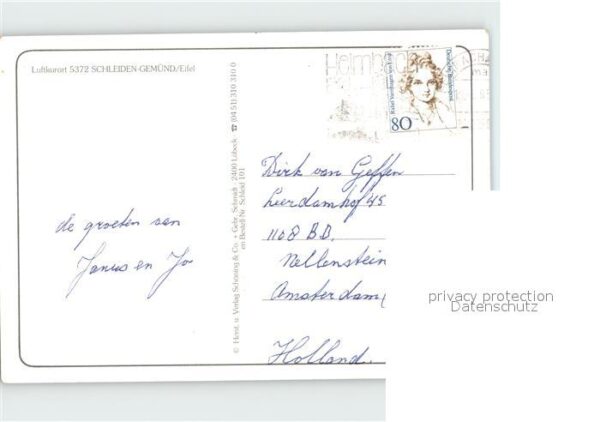 Luftkurort 5372 SCHLEIDEN-GEMÜND/Eifel
de groeten van
Janus en Jo
© Herst. u. Verlag Schöning & Co. · Gebr. Schmidt · 2400 Lübeck ☎ (04 51) 310 310 0
en Bestell Nr. Schleid 101
Heimbach
Deutsche Bundespost
80
Dirk van Geffen
Leerdamhof 45
1108 B.D.
Nellenstein
Amsterdam
Holland.
privacy protection
Datenschutz